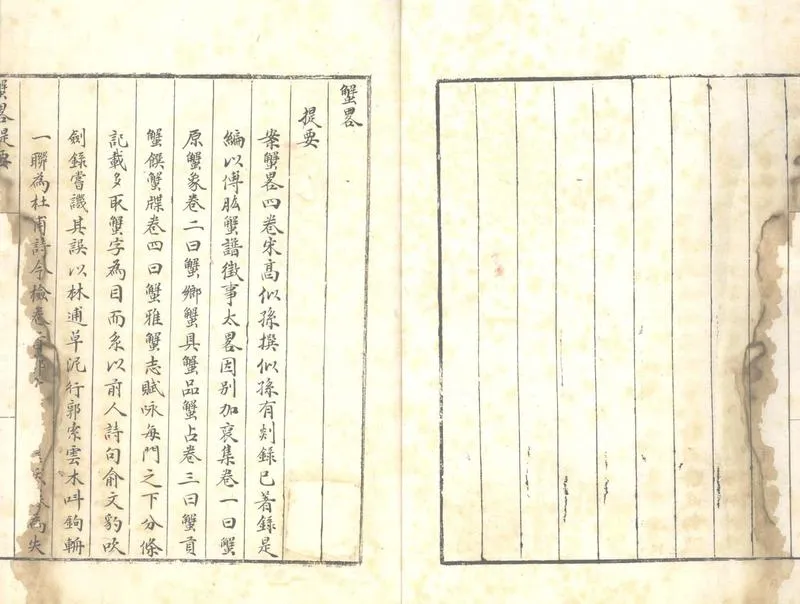 蟹畧
提要
案蟹畧四卷宋髙似孫撰似孫有剡錄已著錄是
編以傅肱蟹譜徵事太畧因别加裒集卷一曰蟹
原蟹象卷二曰蟹鄉蟹具蟹品蟹占卷三曰蟹貢
蟹饌蟹牒卷四曰蟹雅蟹志賦咏每門之下分條
記載多取蟹字為目而系以前人詩句俞文豹吹
劍錄嘗譏其誤以林逋草泥行郭索雲木叫鉤輈
一聯為杜甫詩今檢卷為失
蟹畧提要